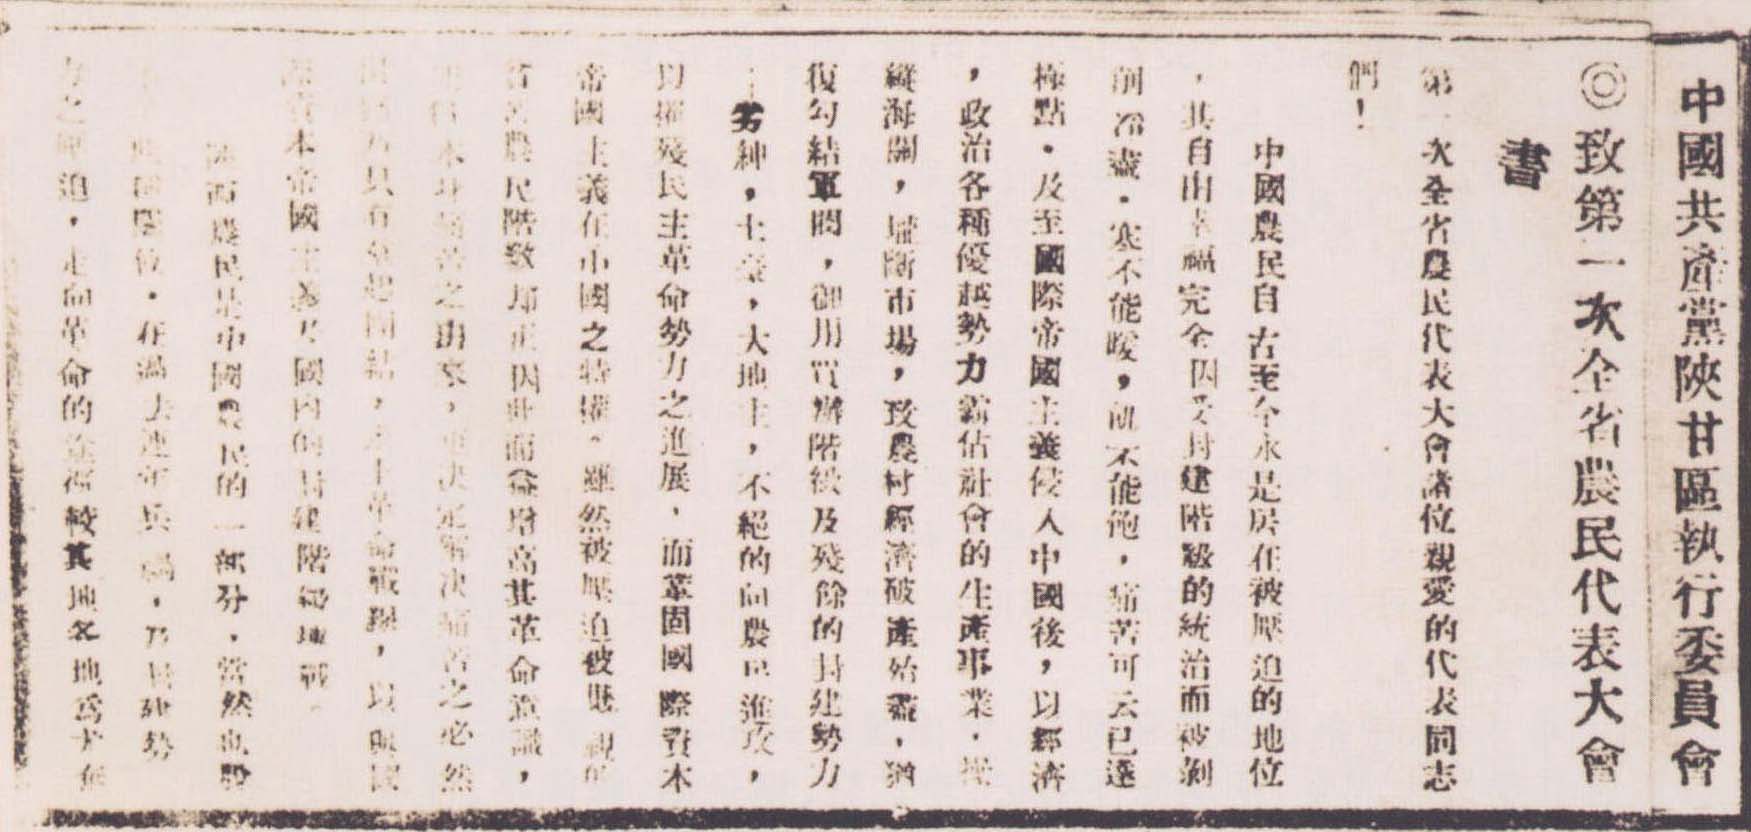 中國共產黨陝甘區執行委員會
◎致第一次全省農民代表大會
書
第一次全省農民代表大會諸位親愛的代表同志
們！
中國農民自古至今永是居在被壓迫的地位
，其自由幸福完全因受封建階級的統治而被剝
削淨盡・寒不能暖，飢不能飽，痛苦可云已達
極點・及至國際帝國主義侵入中國後，以經濟
，政治各種優越勢力霸佔社會的生產事業・操
縱海關，壟斷市場，致農村經濟破產殆盡，猶
復勾結軍閥，御用買辦階級及殘餘的封建勢力
劣紳，土豪，大地主，不絕的向農民進攻，
以摧殘民主革命勢力之進展，而鞏固國際資本
帝國主義在中國之特權・雖然被壓迫被
農民階級却正因此而益增高其革命意識，
本身痛苦之由來，更決定解決痛苦之必然
只有奮起團結，走上革命戰線，以與國
際資本帝國主義及國內的封建階級地戰
陝西農民是中國農民的一部分，當然也
地位・在過去連年兵禍，及封建勢
力之壓迫，走向革命的途徑較其地各地爲尤